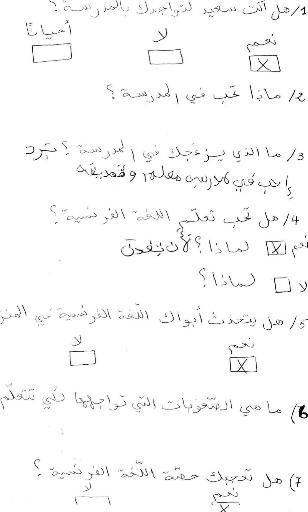 1/ هل أنت سعيد لتواجدك بالمدرسة؟
نعم لا أحيانا
X
2/ ماذا تحب في المدرسة؟
3/ ما الذي يزعجك في المدرسة؟
4/ هل تحب تعلم اللغة الفرنسية؟
نعم X لماذا؟
لا لماذا؟
5/ هل يتحدث أبواك اللغة الفرنسية في
نعم لا
X
6/ ما هي الصعوبات التي تواجهها لكي تتعلم
7/ هل تعجبك حصة اللغة الفرنسية؟
نعم لا
X